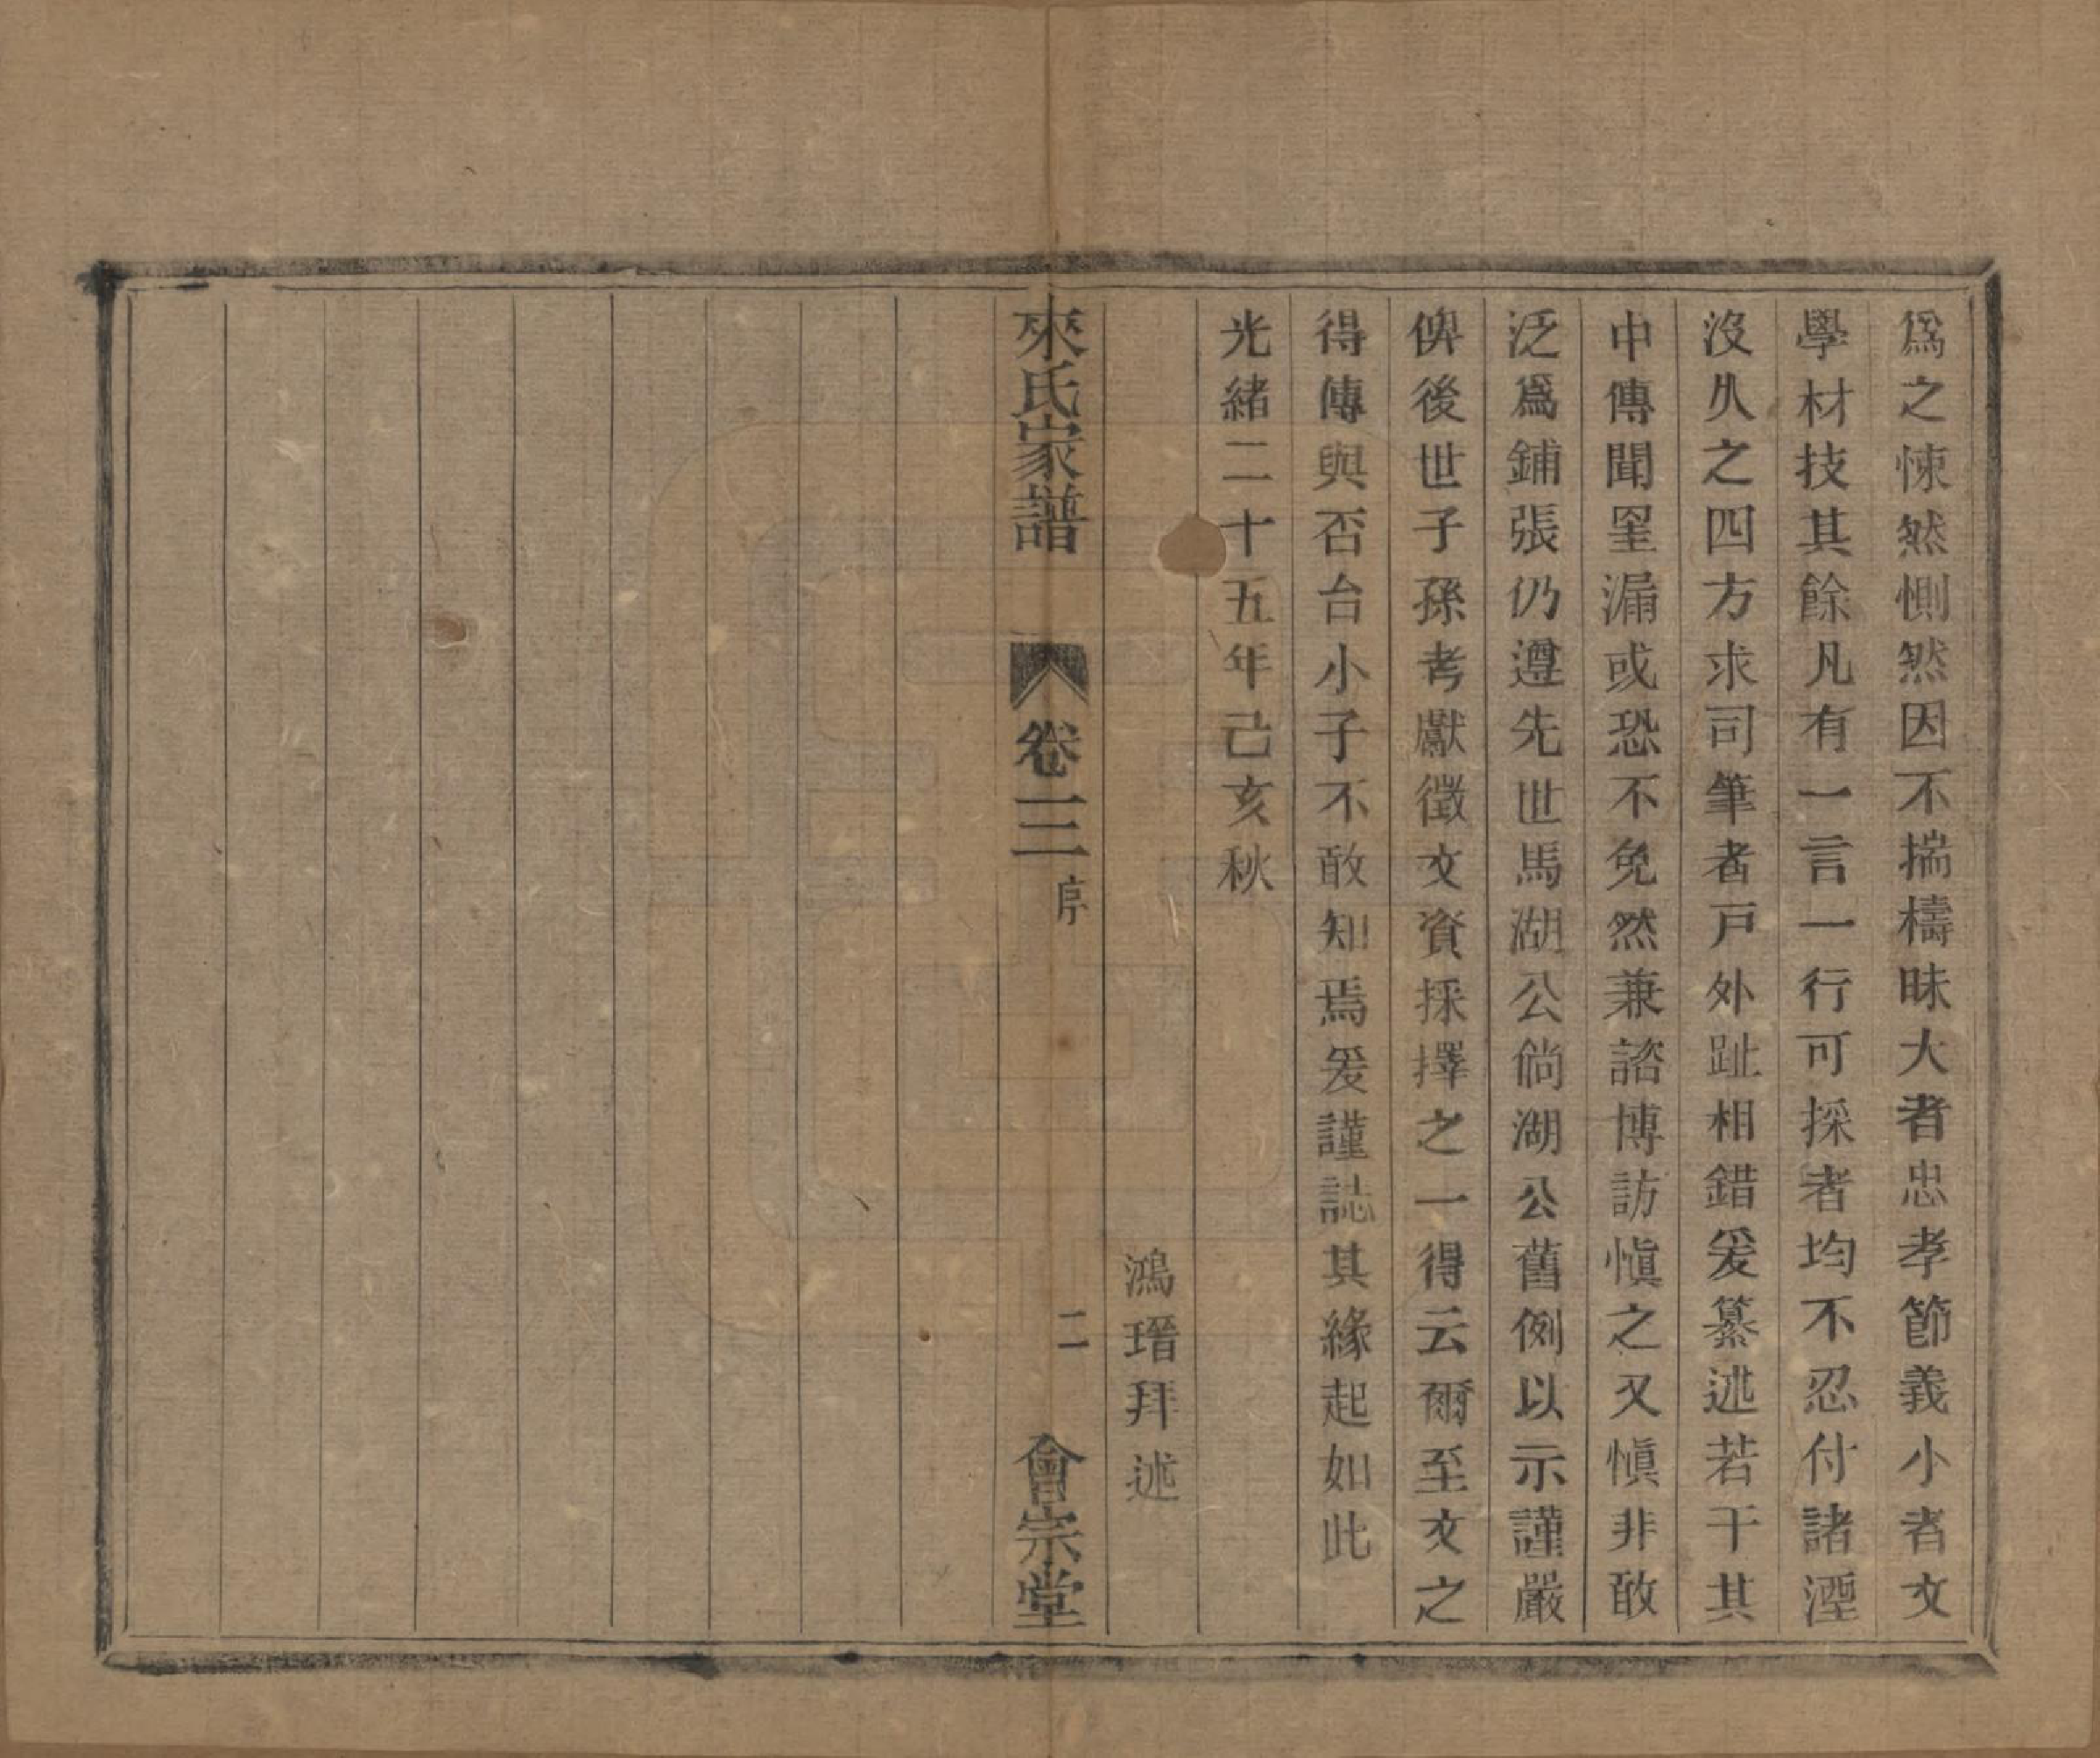 爲之悚然惻然因不揣檮昧大者忠孝節義小者文
學材技其餘凡有一言一行可採者均不忍付諸湮
沒久之四方求司筆者戸外趾相錯爰纂述若干其
中傳聞罣漏或恐不免然兼諮博訪愼之又愼非敢
泛爲鋪張仍遵先世馬湖公倘湖公舊例以示謹嚴
俾後世子孫考獻徵文資採擇之一得云爾至文之
得傳與否台小子不敢知焉爰謹誌其緣起如此
光緒二十五年己亥秋
鴻瑨拜述
來氏家譜 卷三 序 二 會宗堂